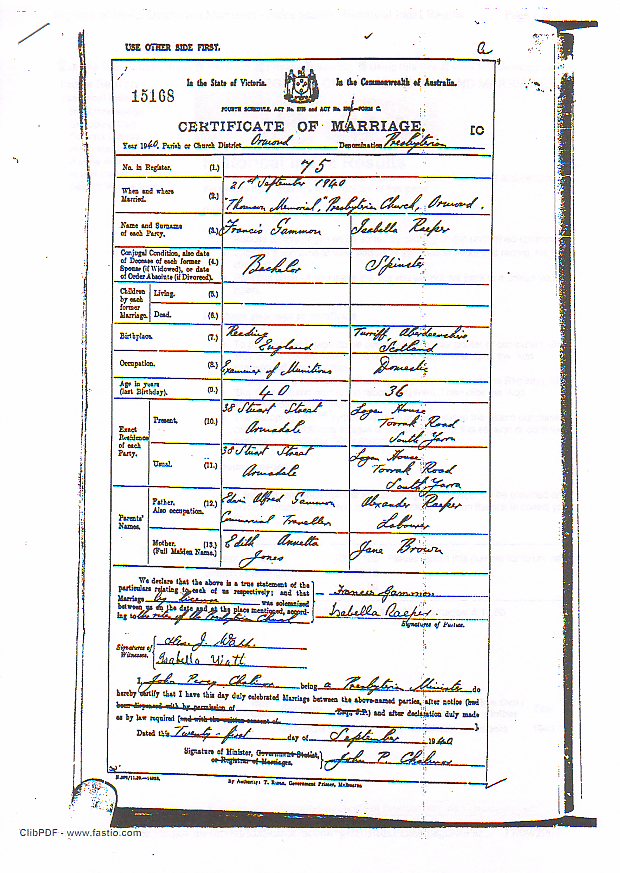 USE OTHER SIDE FIRST.
a
15168
In the State of Victoria. In the Commonwealth of Australia.
FOURTH SCHEDULE, ACT No. and ACT No. —FORM C.
CERTIFICATE OF MARRIAGE.
Year 1940, Parish or Church District Ormond Denomination Presbyterian
No. in Register. (1.) 75
When and where Married. (2.) 21st September 1940
"Thomson Memorial," Presbyterian Church, Ormond.
Name and Surname of each Party. (3.) Francis Gammon Isabella Raeper
Conjugal Condition, also date
of Decease of each former (4.)
Spouse (if Widowed), or date
of Order Absolute (if Divorced).
Bachelor Spinster
Children by each former Marriage.
Living. (5.)
Dead. (6.)
Birthplace. (7.) Reading England Turriff, Aberdeenshire, Scotland
Occupation. (8.) Examiner of Munitions Domestic
Age in years (last Birthday). (9.) 40 36
Exact Residence of each Party.
Present. (10.) 38 Stuart Street Armadale Logan House Toorak Road South Yarra
Usual. (11.) 38 Stuart Street Armadale Logan House Toorak Road South Yarra
Parents' Names.
Father. (12.) Also occupation. Edwin Alfred Gammon Commercial Traveller Alexander Raeper Labourer
Mother. (13.) (Full Maiden Name.) Edith Annetta Jones Jane Brown
We declare that the above is a true statement of the
particulars relating to each of us respectively; and that
Marriage by licence was solemnized
between us on the date and at the place mentioned, accord-
ing to the rites of the Presbyterian Church
Francis Gammon
Isabella Raeper.
Signatures of Parties.
Signatures of Witnesses.
J. Watt.
Isabella Watt
I, John Percy Chalmers being a Presbyterian Minister do
hereby certify that I have this day duly celebrated Marriage between the above-named parties, after notice (had
been dispensed with by permission of Esq., J.P.) and after declaration duly made
as by law required (and with the written consent of )
Dated this Twenty-first day of September 1940
Signature of Minister, Government Statist,
or Registrar of Marriages.
John P. Chalmers
By Authority: T. Rider, Government Printer, Melbourne
ClibPDF - www.fastio.com